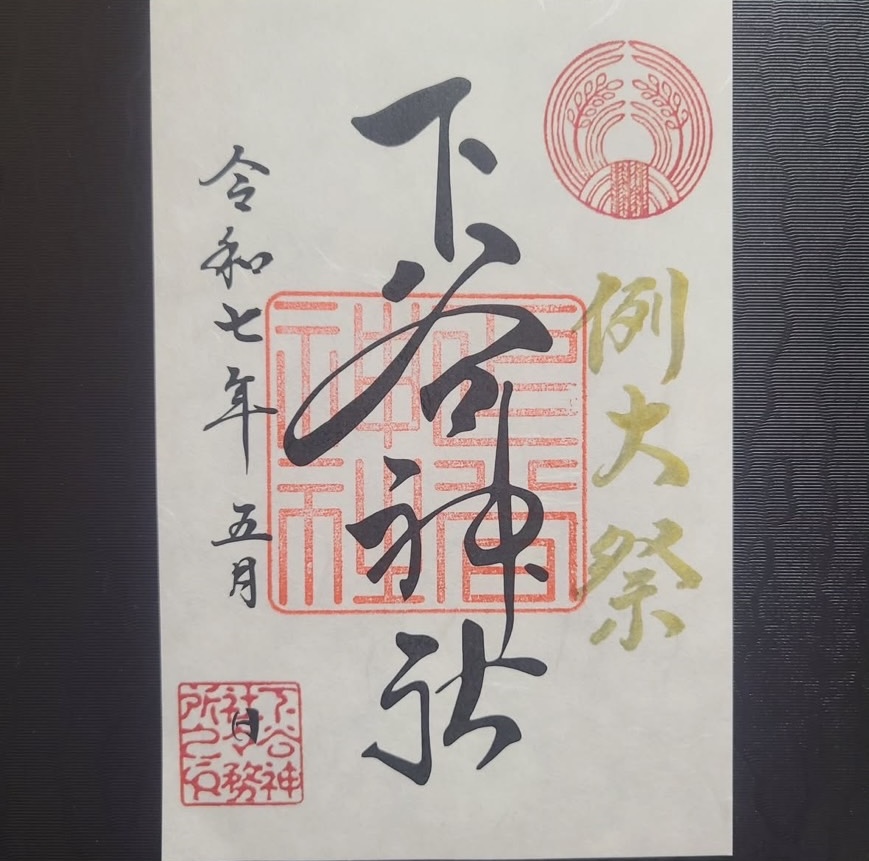 例大祭
下谷神社
下谷神社
令和七年 五月 日
下谷神
社々務
所之印